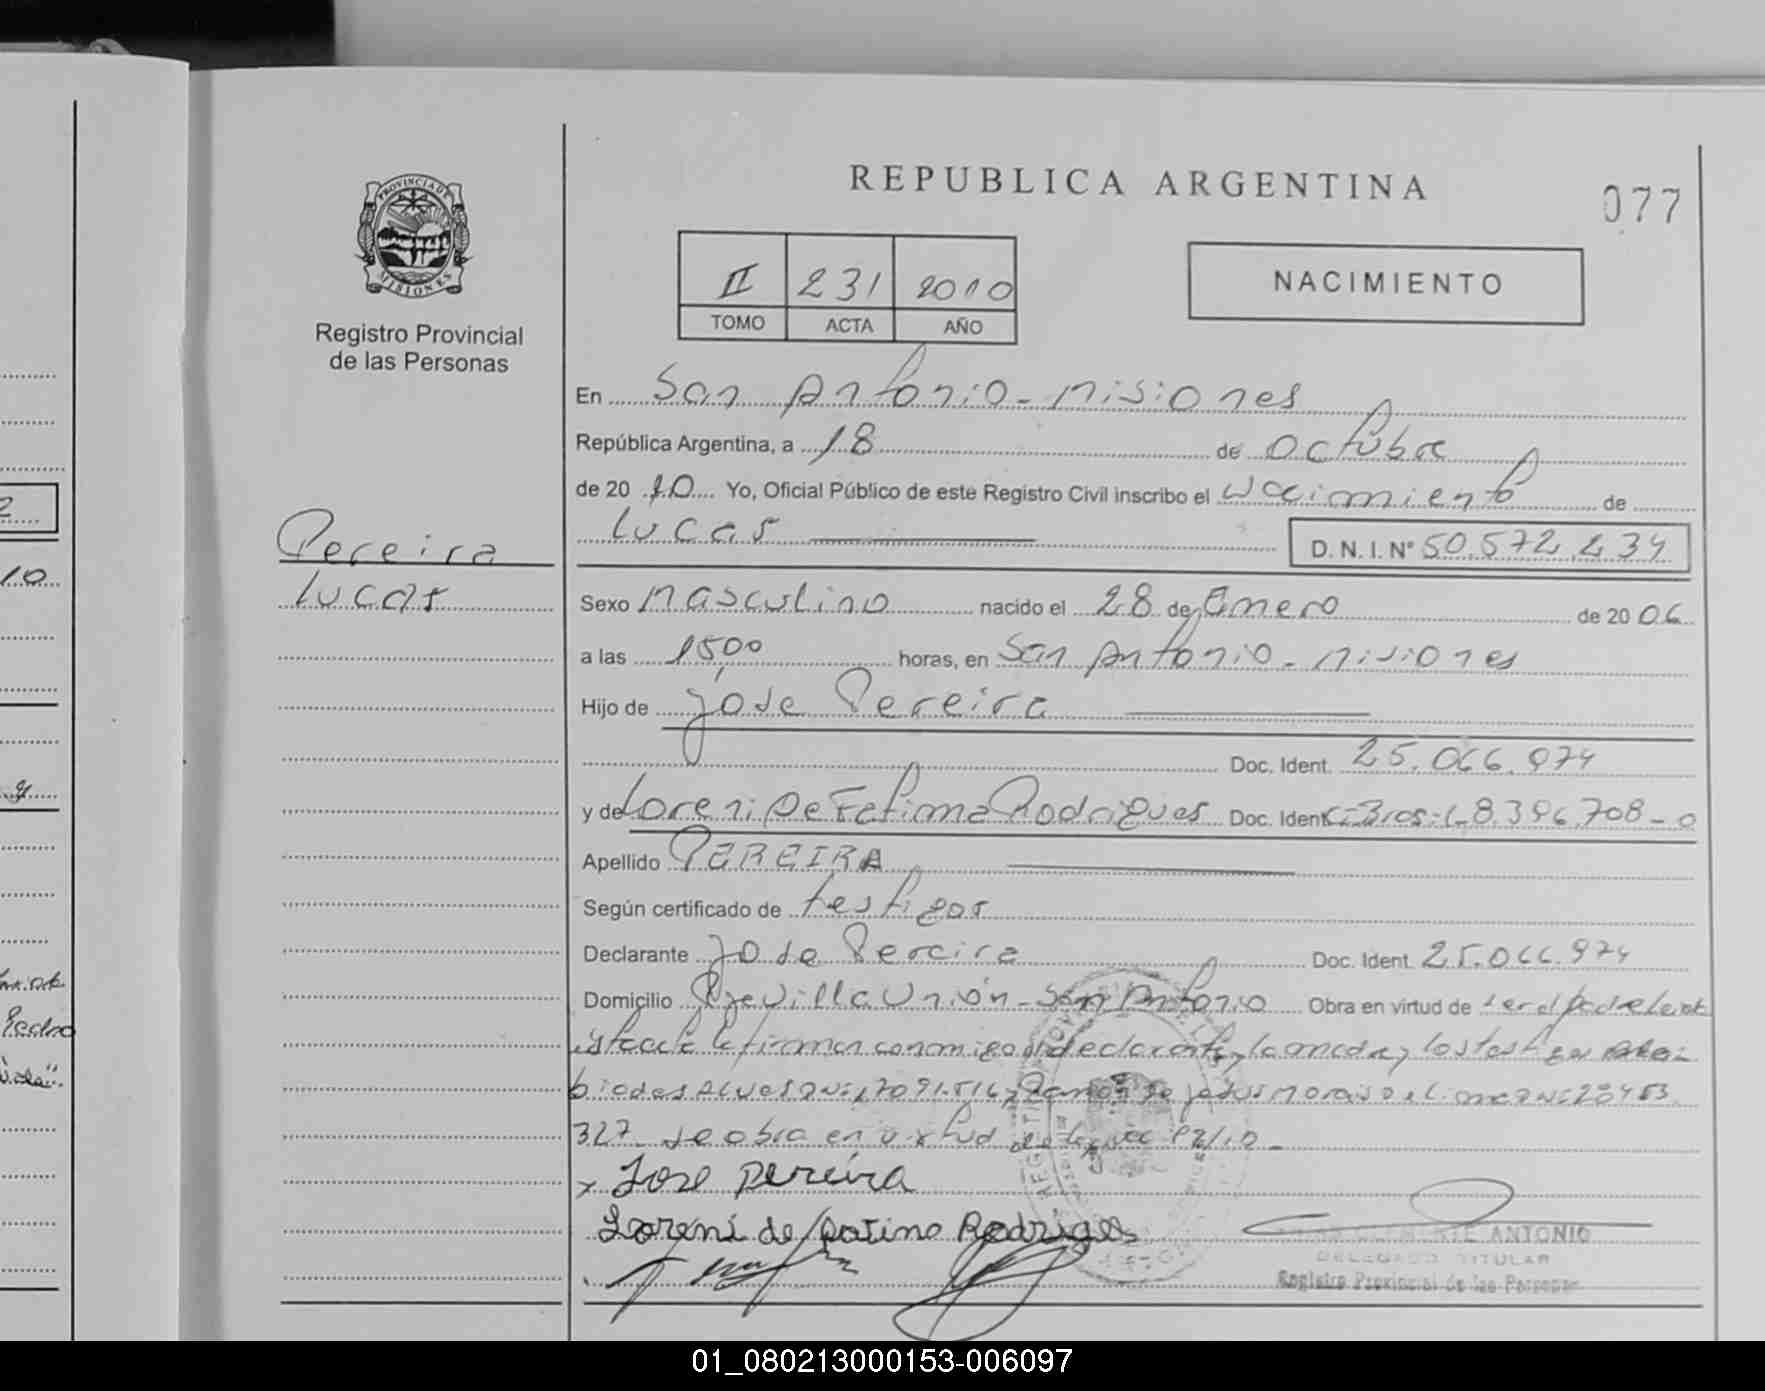 REPUBLICA ARGENTINA
077
PROVINCIA DE
MISIONES
Registro Provincial
de las Personas
II 231 2010
TOMO ACTA AÑO
NACIMIENTO
En San Antonio - Misiones
República Argentina, a 18 de octubre
de 20 10 Yo, Oficial Público de este Registro Civil inscribo el Nacimiento de
Lucas D.N.I. Nº 50.572.234
Pereira
Lucas
Sexo Masculino nacido el 28 de Enero de 20 06
a las 15,00 horas, en San Antonio - Misiones
Hijo de Jose Pereira
Doc. Ident. 25.066.974
y de Loreni De Fatima Rodrigues Doc. Ident. C.I.Bras: 8.396.708-0
Apellido PEREIRA
Según certificado de testigos
Declarante Jose Pereira Doc. Ident. 25.066.974
Domicilio Pje Villa Union - San Antonio Obra en virtud de ser el padre Leida
el acta la firman conmigo el declarante, la madre y los testigos
Alves DNI 17091.516 y Ramon de Jesus Morais de Lima DNI 28453
327 Se obra en virtud de 92/10 -
x Jose pereira
Loreni de fatima Rodrigues
CLEMENTE ANTONIO
DELEGADO TITULAR
Registro Provincial de las Personas
10
Pedro
01_080213000153-006097